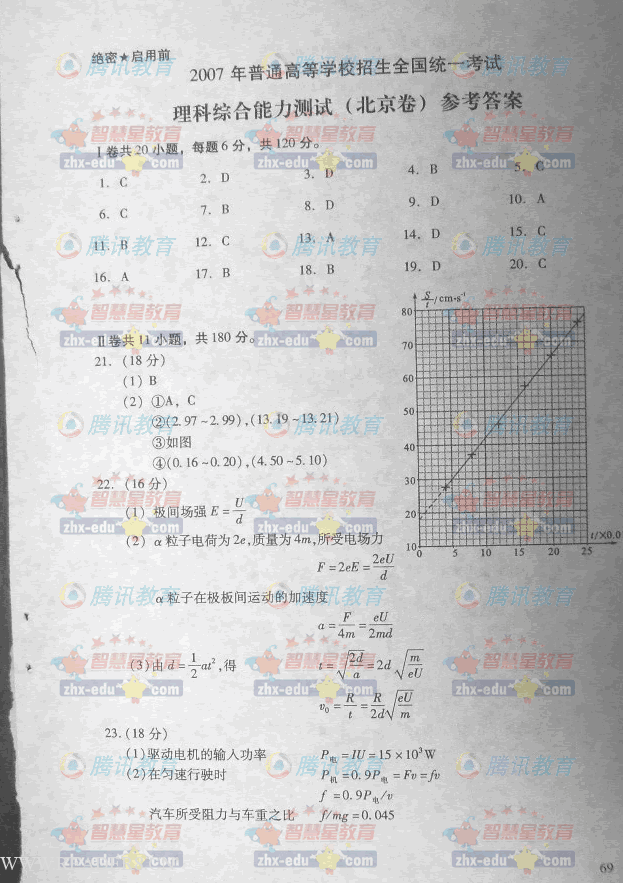 绝密★启用前
2007 年普通高等学校招生全国统一考试
理科综合能力测试（北京卷）参考答案
Ⅰ卷共20小题，每题6分，共120分。
1. C 2. D 3. D 4. B 5. C
6. C 7. B 8. D 9. D 10. A
11. B 12. C 13. A 14. D 15. C
16. A 17. B 18. B 19. D 20. C
Ⅱ卷共11小题，共180分。
21. (18分)
(1) B
(2) ①A, C
②(2.97~2.99),(13.19~13.21)
③如图
④(0.16~0.20),(4.50~5.10)
S/t /cm·s⁻¹
80
70
60
50
40
30
20
10
0 5 10 15 20 25
t/×0.0
22. (16分)
(1) 极间场强 E=U/d
(2) α粒子电荷为2e,质量为4m,所受电场力
F=2eE=2eU/d
α粒子在极板间运动的加速度
a=F/4m=eU/2md
(3)由 d=1/2at²,得 t=√(2d/a)=2d√(m/eU)
v₀=R/t=R/2d√(eU/m)
23. (18分)
(1)驱动电机的输入功率 P电=IU=15×10³W
(2)在匀速行驶时 P机=0.9P电=Fv=fv
f=0.9P电/v
汽车所受阻力与车重之比 f/mg=0.045
69
腾讯教育
智慧星教育
zhx-edu.com